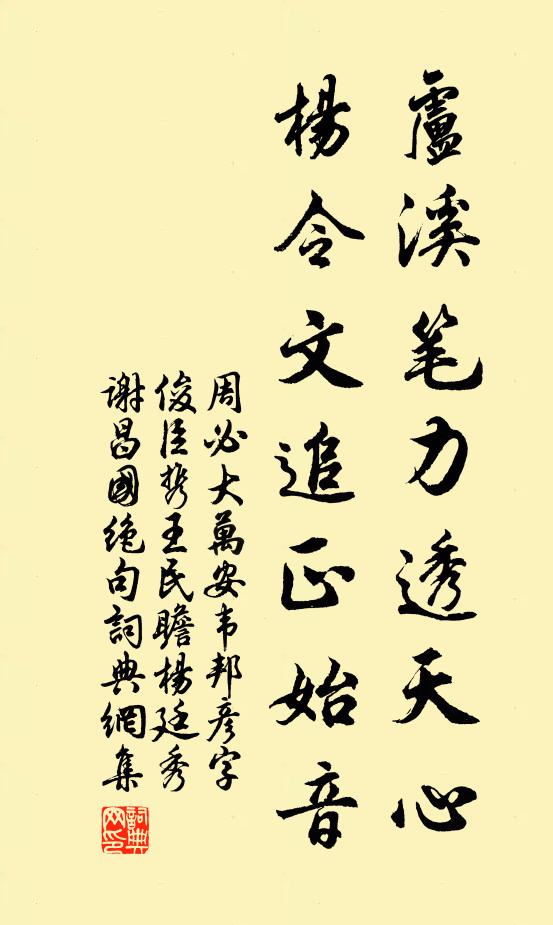 盧溪笔力透天心
楊令文追正始音
周必大萬安韦邦彦字
俊臣携王民瞻楊廷秀
谢昌國绝句詞典網集
詞典网印